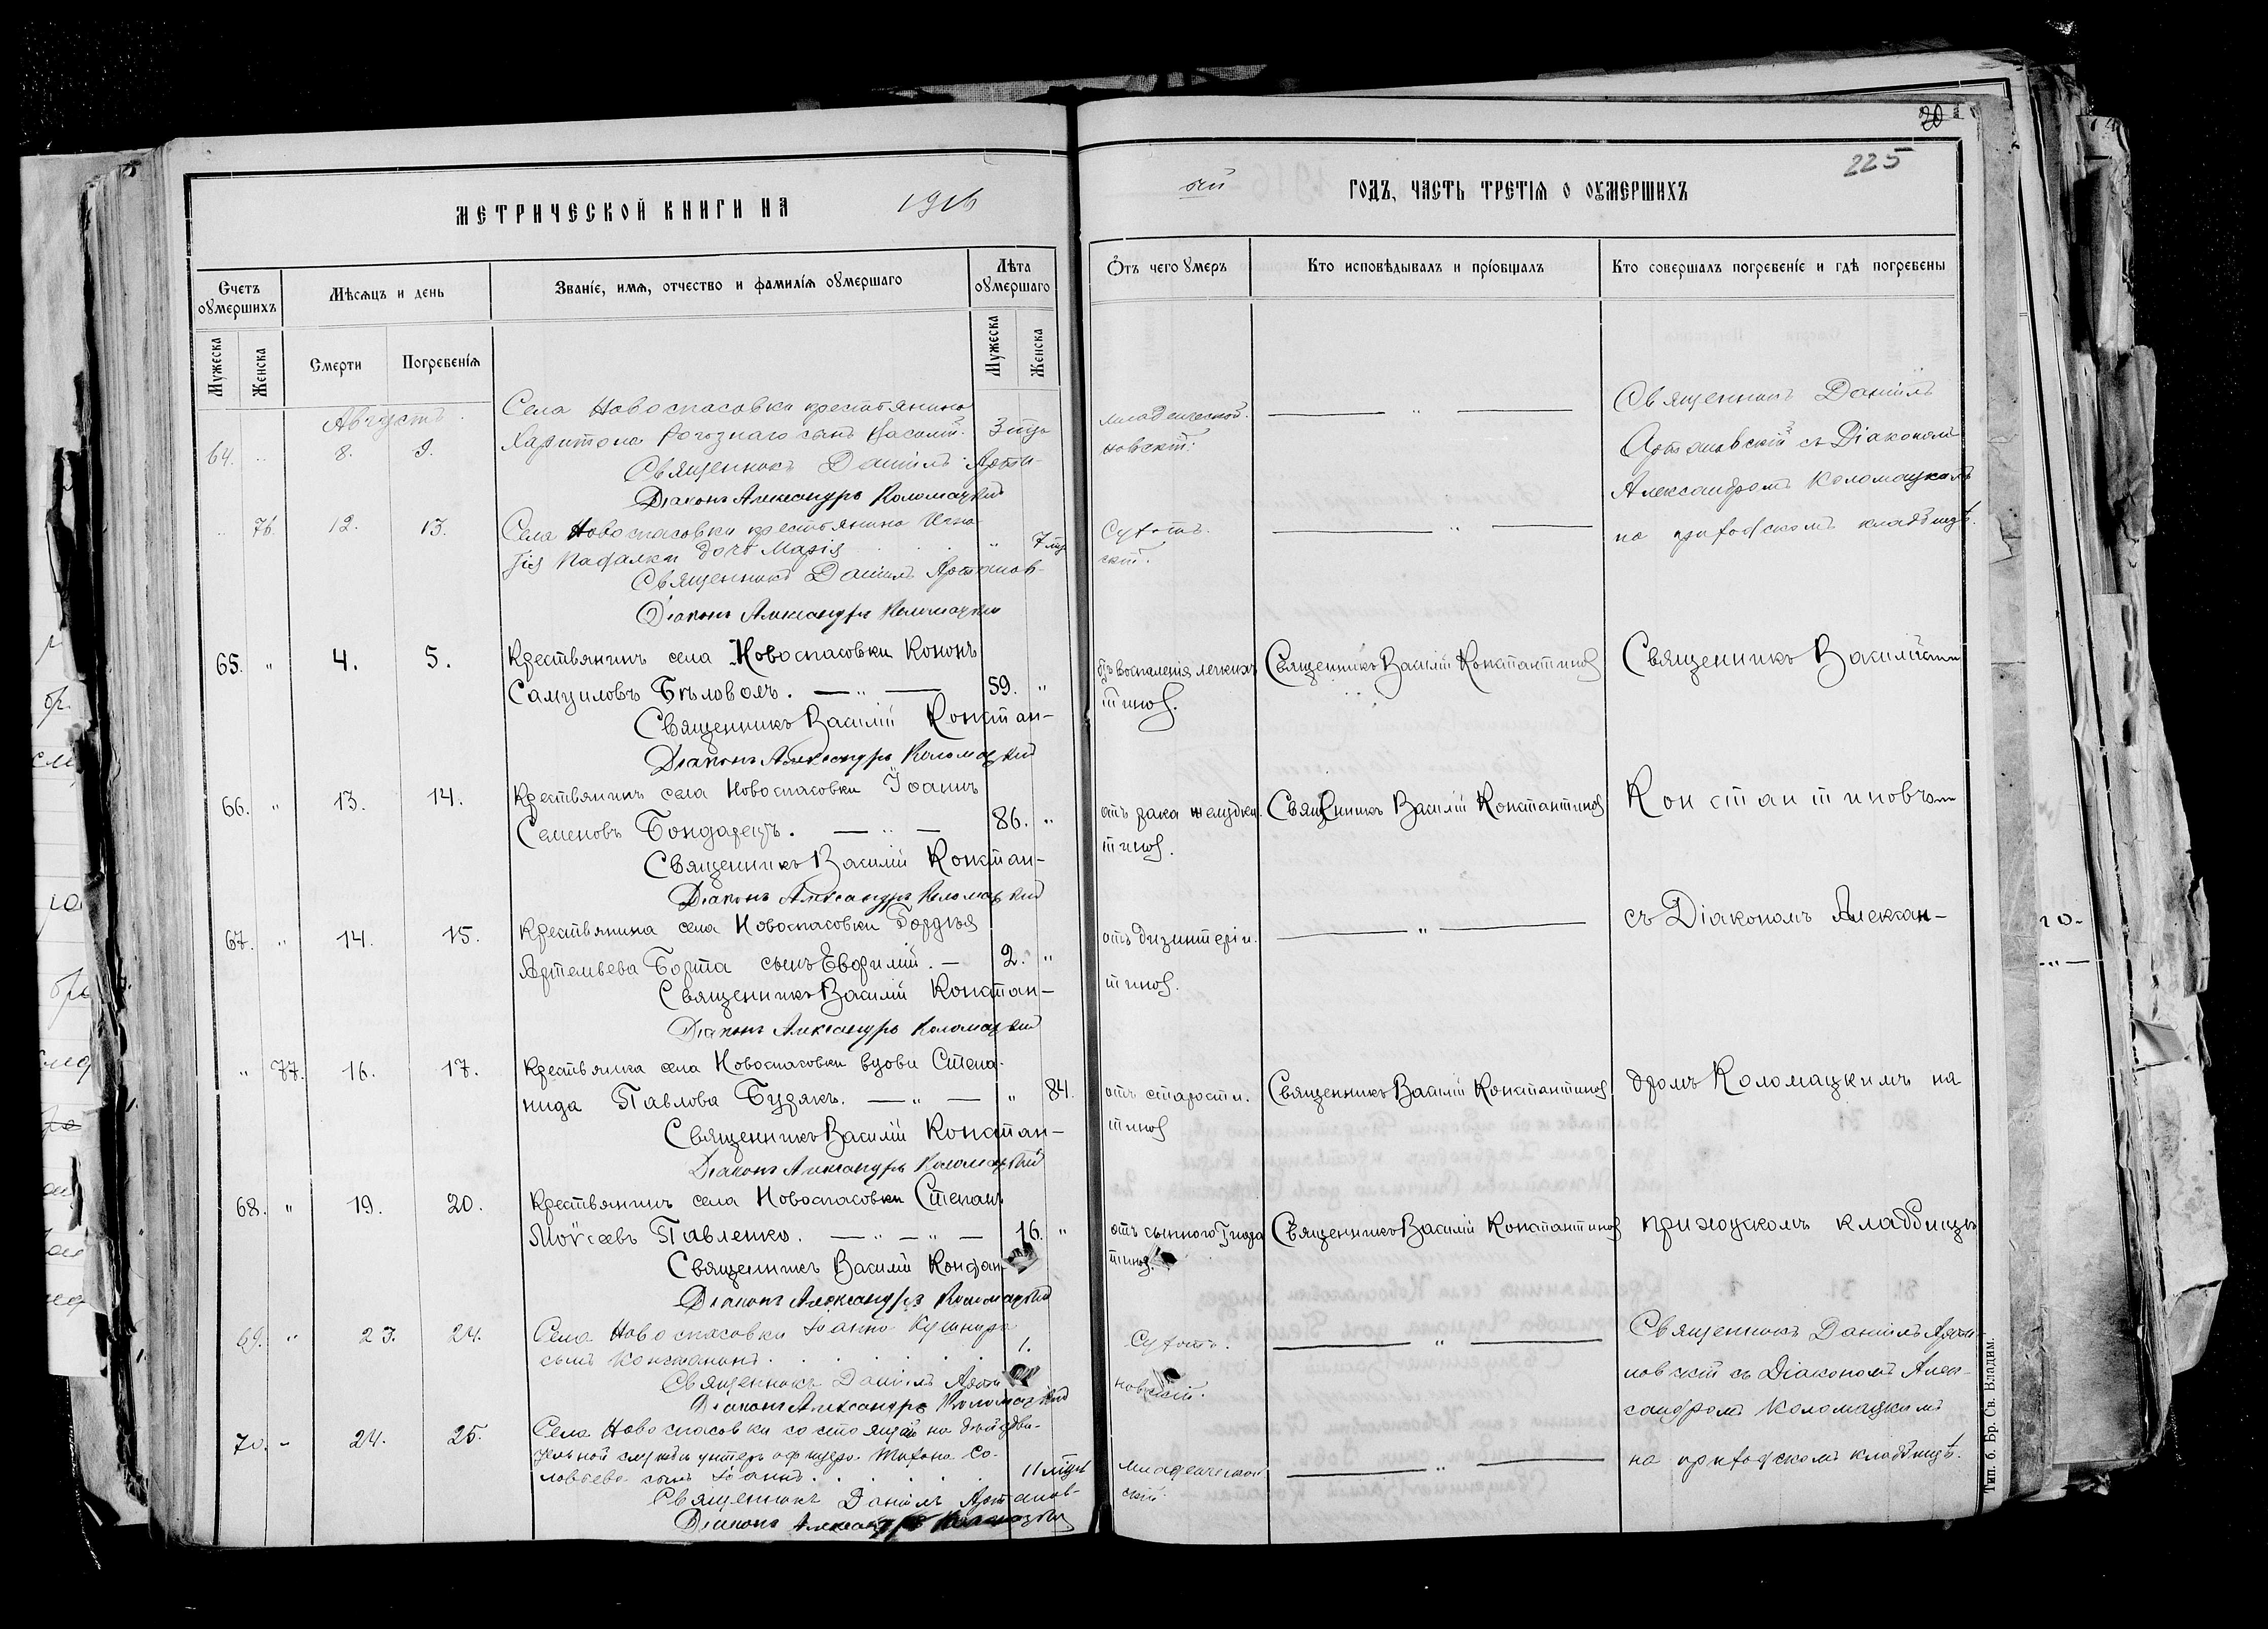 20
225
МЕТРИЧЕСКОЙ КНИГИ НА 1916
ый ГОДЪ, ЧАСТЬ ТРЕТІЯ О ОУМЕРШИХЪ
Счетъ оумершихъ
Мѣсяцъ и день
Званіе, имя, отчество и фамилія оумершаго
Лѣта оумершаго
Отъ чего умеръ
Кто исповѣдывалъ и пріобщалъ
Кто совершалъ погребеніе и гдѣ погребены
Мужеска
Женска
Смерти
Погребенія
Мужеска
Женска
Августъ.
Села Новоспасовки крестьянина
64. " 8. 9. Харитона Рогознаго сынъ Василій. 3 мцъ
Священникъ Даніилъ Арта-
Діаконъ Александръ Коломацкий
младенческой.
новскій.
Священникъ Даніилъ
Артановскій съ Діакономъ
Александромъ Коломацкимъ
на приходскомъ кладбищѣ.
" 76. 12. 13. Села Новоспасовки крестьянина
дочь Марія " 7 мц
Священникъ Даніилъ Артанов-
Діаконъ Александръ Коломацкий
скій.
65. " 4. 5. Крестьянинъ села Новоспасовки Кононъ
Самуиловъ Бѣловолъ. — " — 59. "
Священникъ Василій Констан-
Діаконъ Александръ Коломацкий
отъ воспаленія легкихъ
тинов.
Священникъ Василій Константинов
Священникъ Василій
66. " 13. 14. Крестьянинъ села Новоспасовки Іоаннъ
Семеновъ Бондарецъ. — " — 86. "
Священникъ Василій Констан-
Діаконъ Александръ Коломацкий
отъ рака желудка.
тинов.
Священникъ Василій Константинов
Константиновъ
67. " 14. 15. Крестьянина села Новоспасовки Гордѣя
Артемьева Борта сынъ Евфимій. — 2. "
Священникъ Василій Констан-
Діаконъ Александръ Коломацкий
отъ дизинтеріи.
тинов.
— " —
съ Діакономъ Алексан-
" 77. 16. 17. Крестьянка села Новоспасовки вдова Степа-
нида Павлова Бурякъ. — " — " 84.
Священникъ Василій Констан-
Діаконъ Александръ Коломацкий
отъ старости.
тинов
Священникъ Василій Константинов
дромъ Коломацкимъ на
68. " 19. 20. Крестьянинъ села Новоспасовки Степанъ
Моѵсеевъ Павленко. — " — " — 16. "
Священникъ Василій Констан
Діаконъ Александръ Коломацкий
отъ сыпного тифа
тинов.
Священникъ Василій Константинов
приходскомъ кладбищѣ
69. " 23. 24. Села Новоспасовки Іоанна Кушнира
сынъ 1.
Священникъ Даніилъ Арта
Діаконъ Александръ Коломацкий
новскій.
— " —
Священникъ Даніилъ Арта-
новскій съ Діакономъ Алек-
сандромъ Коломацкимъ
на приходскомъ кладбищѣ.
70. " 24. 25. Села Новоспасовки состоящаго на дѣйстви-
тельной службѣ унтеръ офицера Тихона Со-
ловьева сынъ Іоаннъ. 11 мцъ
Священникъ Даніилъ Артанов-
Діаконъ Александръ Коломацкий
младенческой
скій.
— " —
Тип. б. Бр. Св. Владим.